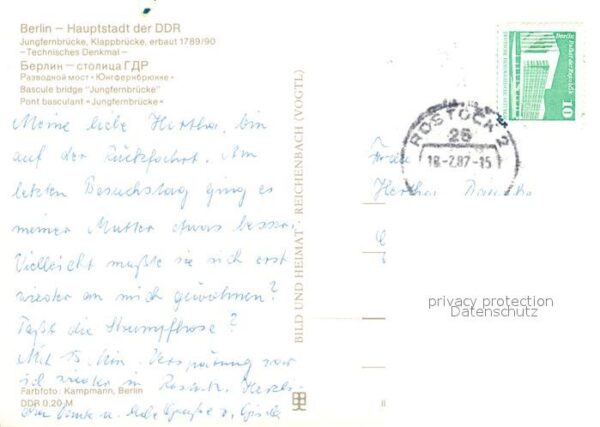 Berlin – Hauptstadt der DDR
Jungfernbrücke, Klappbrücke, erbaut 1789/90
– Technisches Denkmal –
Берлин – столица ГДР
Разводной мост • Юнгфернбрюкке •
Bascule bridge "Jungfernbrücke"
Pont basculant • Jungfernbrücke •
Meine liebe Hertha, bin
auf der Rückfahrt. Am
letzten Besuchstag ging es
meiner Mutter etwas besser.
Vielleicht mußte sie sich erst
wieder an mich gewöhnen?
Paßt die Strumpfhose?
Mit 15 Min. Verspätung war
ich wieder in Rostock. Herzli-
chen Dank u. liebe Grüße v. Gisela
Farbfoto: Kampmann, Berlin
DDR 0,20 M
BILD UND HEIMAT · REICHENBACH (VOGTL)
ROSTOCK 2
25
18.-7.87-15
10
Frau
Hertha
privacy protection
Datenschutz